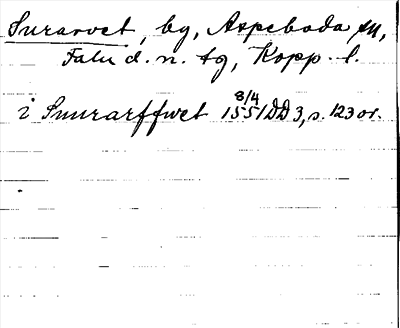 Surarvet, by, Aspeboda sn,
Falu d. n. tg, Kopp. l.
i Suurarffwet 8/4 1551 DD 3, s. 123 or.